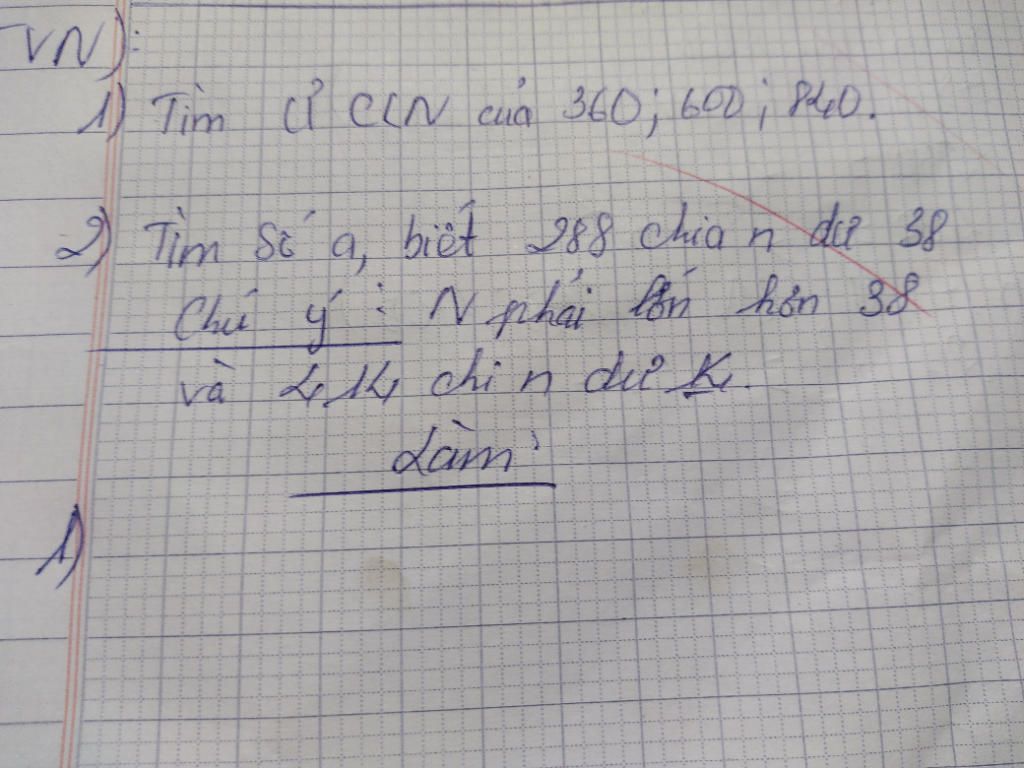 TVN):
1) Tìm Ư CLN của 360; 600; 840.
2) Tìm số a, biết 288 chia n dư 38
Chú ý: N phải lớn hơn 38
và 414 chi n dư 14.
Làm:
1)